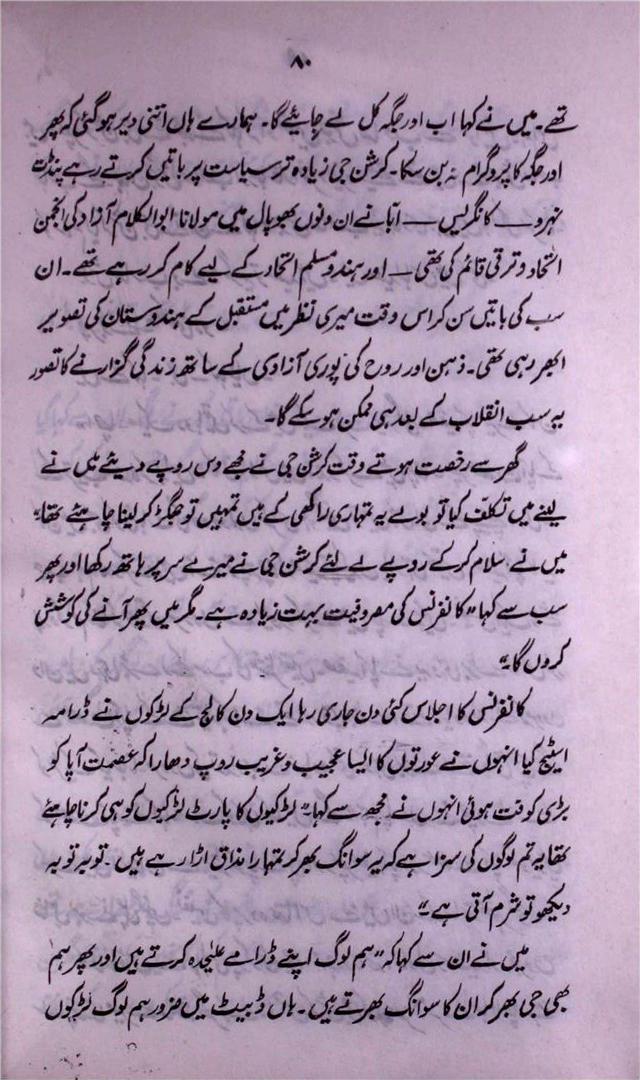 ۸۰
تھے۔ میں نے کہا اب اور جگہ کل لے جایئے گا۔ ہمارے ہاں اتنی دیر ہوگئی کہ پھر
اور جگہ کا پروگرام نہ بن سکا۔ کرشن جی زیادہ تر سیاست پر باتیں کرتے رہے پنڈت
نہرو —— کانگریس —— ابّا نے ان دنوں بھوپال میں مولانا ابوالکلام آزاد کی انجمن
اتحاد و ترقی قائم کی تھی — اور ہندو مسلم اتحاد کے لیے کام کر رہے تھے۔ ان
سب کی باتیں سن کر اس وقت میری نظر میں مستقبل کے ہندوستان کی تصویر
ابھر رہی تھی۔ ذہن اور روح کی پوری آزادی کے ساتھ زندگی گزارنے کا تصور
یہ سب انقلاب کے بعد ہی ممکن ہو سکے گا۔
گھر سے رخصت ہوتے وقت کرشن جی نے مجھے دس روپے دیئے میں نے
لینے میں تکلف کیا تو بولے یہ تمہاری راکھی کے ہیں تمہیں تو جھگڑ کر لینا چاہئے تھا"
میں نے سلام کر کے روپے لے لئے کرشن جی نے میرے سر پر ہاتھ رکھا اور پھر
سب سے کہا "کانفرنس کی مصروفیت بہت زیادہ ہے۔ مگر میں پھر آنے کی کوشش
کروں گا۔"
کانفرنس کا اجلاس کئی دن جاری رہا ایک دن کالج کے لڑکوں نے ڈرامہ
اسٹیج کیا انہوں نے عورتوں کا ایسا عجیب و غریب روپ دھارا کہ عصمت آپا کو
بڑی کوفت ہوئی انہوں نے مجھ سے کہا۔" لڑکیوں کا پارٹ لڑکیوں کو ہی کرنا چاہئے
تھا یہ تم لوگوں کی سزا ہے کہ یہ سوانگ بھر کر تمہارا مذاق اڑا رہے ہیں۔ توبہ توبہ
دیکھو تو شرم آتی ہے۔"
میں نے ان سے کہا کہ "ہم لوگ اپنے ڈرامے علیٰحدہ کرتے ہیں اور پھر ہم
بھی جی بھر کر ان کا سوانگ بھرتے ہیں۔ ہاں ڈبیٹ میں ضرور ہم لوگ لڑکوں